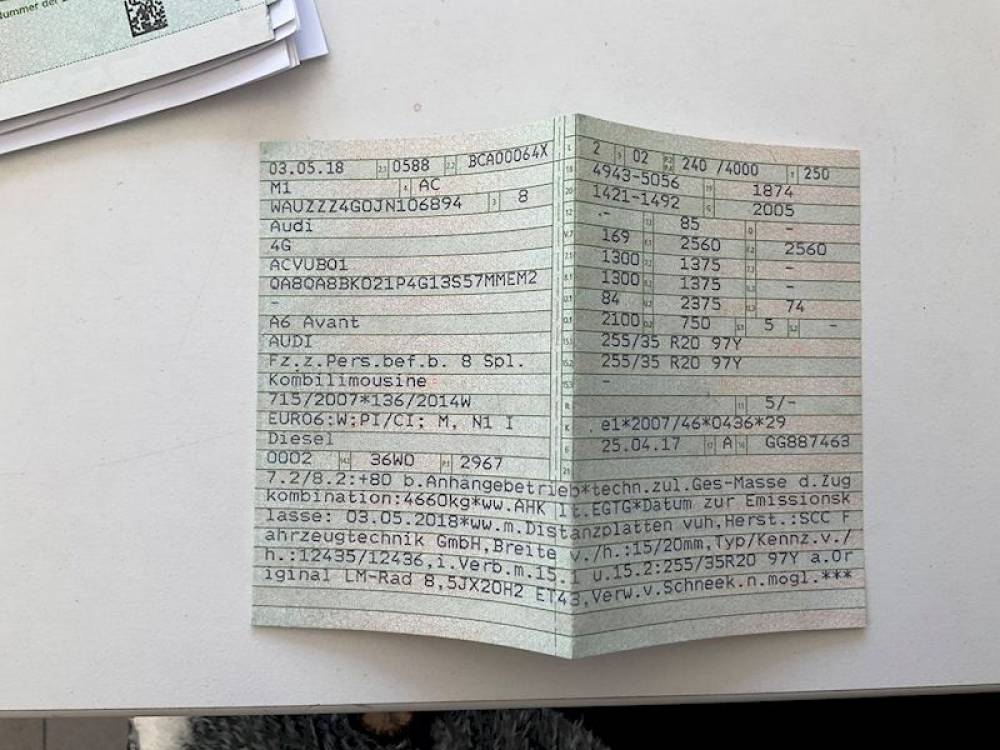 ummer der
03.05.18 2.1 0588 2.2 BCA00064X
M1 4 AC
WAUZZZ4G0JN106894 3 8
Audi
4G
ACVUBQ1
QA8QA8BK021P4G13S57MMEM2
-
A6 Avant
AUDI
Fz.z.Pers.bef.b. 8 Spl.
Kombilimousine
715/2007*136/2014W
EURO6;W;PI/CI; M, N1 I
Diesel
0002 36W0 2967
L 2 9 02 240 /4000 T 250
18 4943-5056 19 1874
20 1421-1492 G 2005
12 .- 13 85 Q -
V.7 169 F.1 2560 F.2 2560
7.1 1300 7.2 1375 7.3 -
8.1 1300 8.2 1375 8.3 -
U.1 84 U.2 2375 U.3 74
O.1 2100 O.2 750 S.1 5 S.2 -
15.1 255/35 R20 97Y
15.2 255/35 R20 97Y
15.3 -
R 11 5/-
K e1*2007/46*0436*29
6 25.04.17 17 A 16 GG887463
21
7.2/8.2:+80 b.Anhängebetrieb*techn.zul.Ges-Masse d.Zug
kombination:4660kg*ww.AHK lt.EGTG*Datum zur Emissionsk
lasse: 03.05.2018*ww.m.Distanzplatten vuh,Herst.:SCC F
ahrzeugtechnik GmbH,Breite v./h.:15/20mm,Typ/Kennz.v./
h.:12435/12436,i.Verb.m.15.1 u.15.2:255/35R20 97Y a.Or
iginal LM-Rad 8,5JX20H2 ET43,Verw.v.Schneek.n.mogl.***